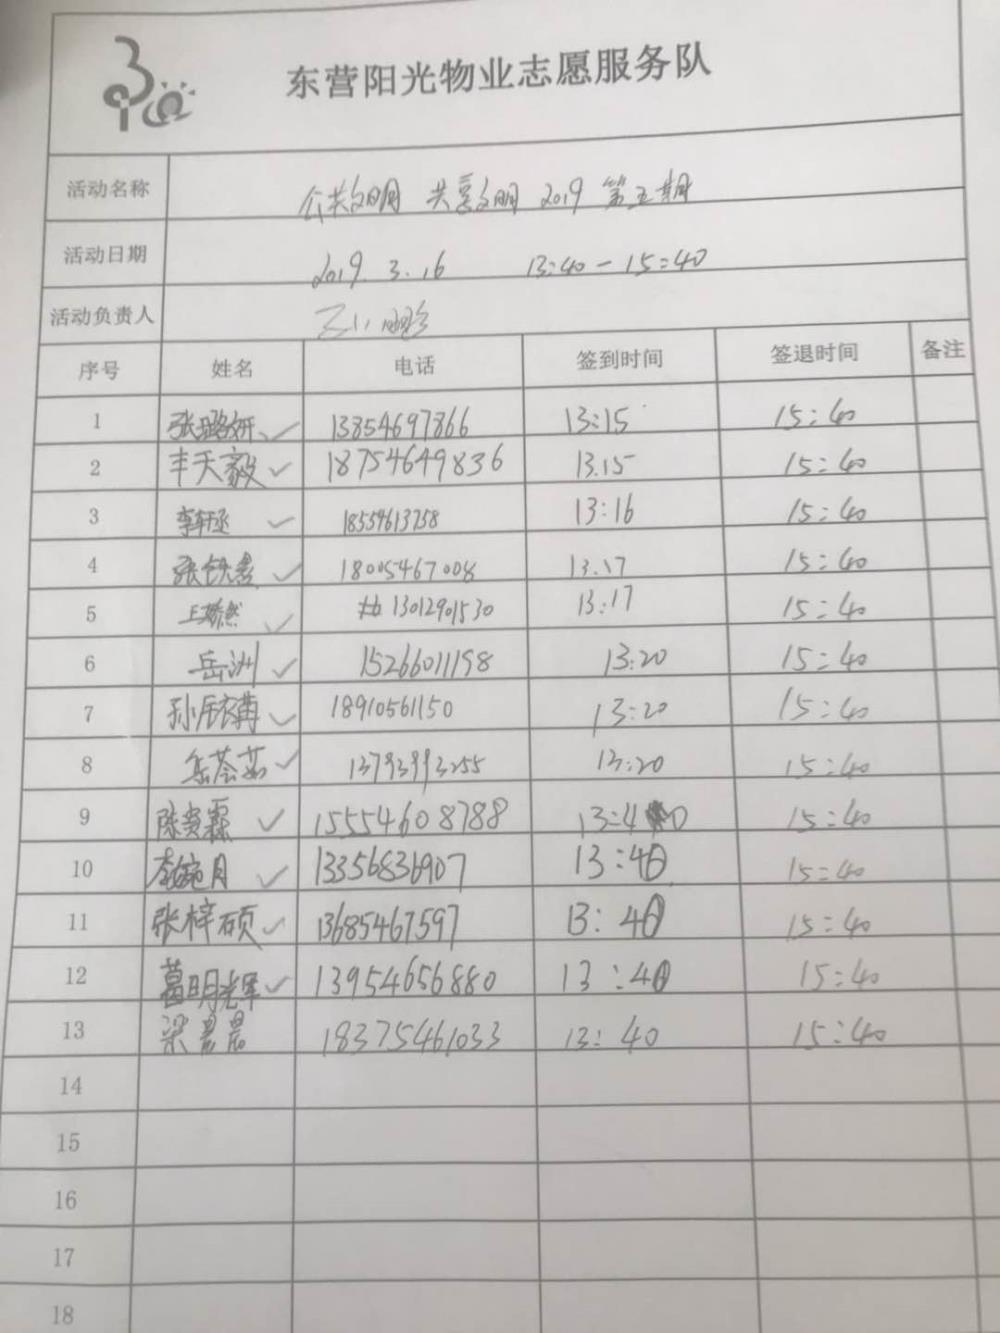 东营阳光物业志愿服务队
活动名称 公共文明 共享文明 2019 第五期
活动日期 2019.3.16 13:40-15:40
活动负责人
序号 姓名 电话 签到时间 签退时间 备注
1 张璐妍 ✓ 13854697866 13:15 15:40
2 丰天毅 ✓ 18754649836 13.15 15:40
3 李轩丞 ✓ 13:16 15:40
4 ✓ 18005467008 13.17 15:40
5 ✓ 13012901530 13:17 15:40
6 岳洲 ✓ 15266011198 13:20 15:40
7 ✓ 18910561150 13:20 15:40
8 ✓ 13793993255 13:20 15:40
9 ✓ 15554608788 13:40 15:40
10 ✓ 13356836907 13:40 15:40
11 张梓硕 ✓ 13685467597 13:40 15:40
12 葛明光军 ✓ 13954656880 13:40 15:40
13 18375461033 13:40 15:40
14
15
16
17
18